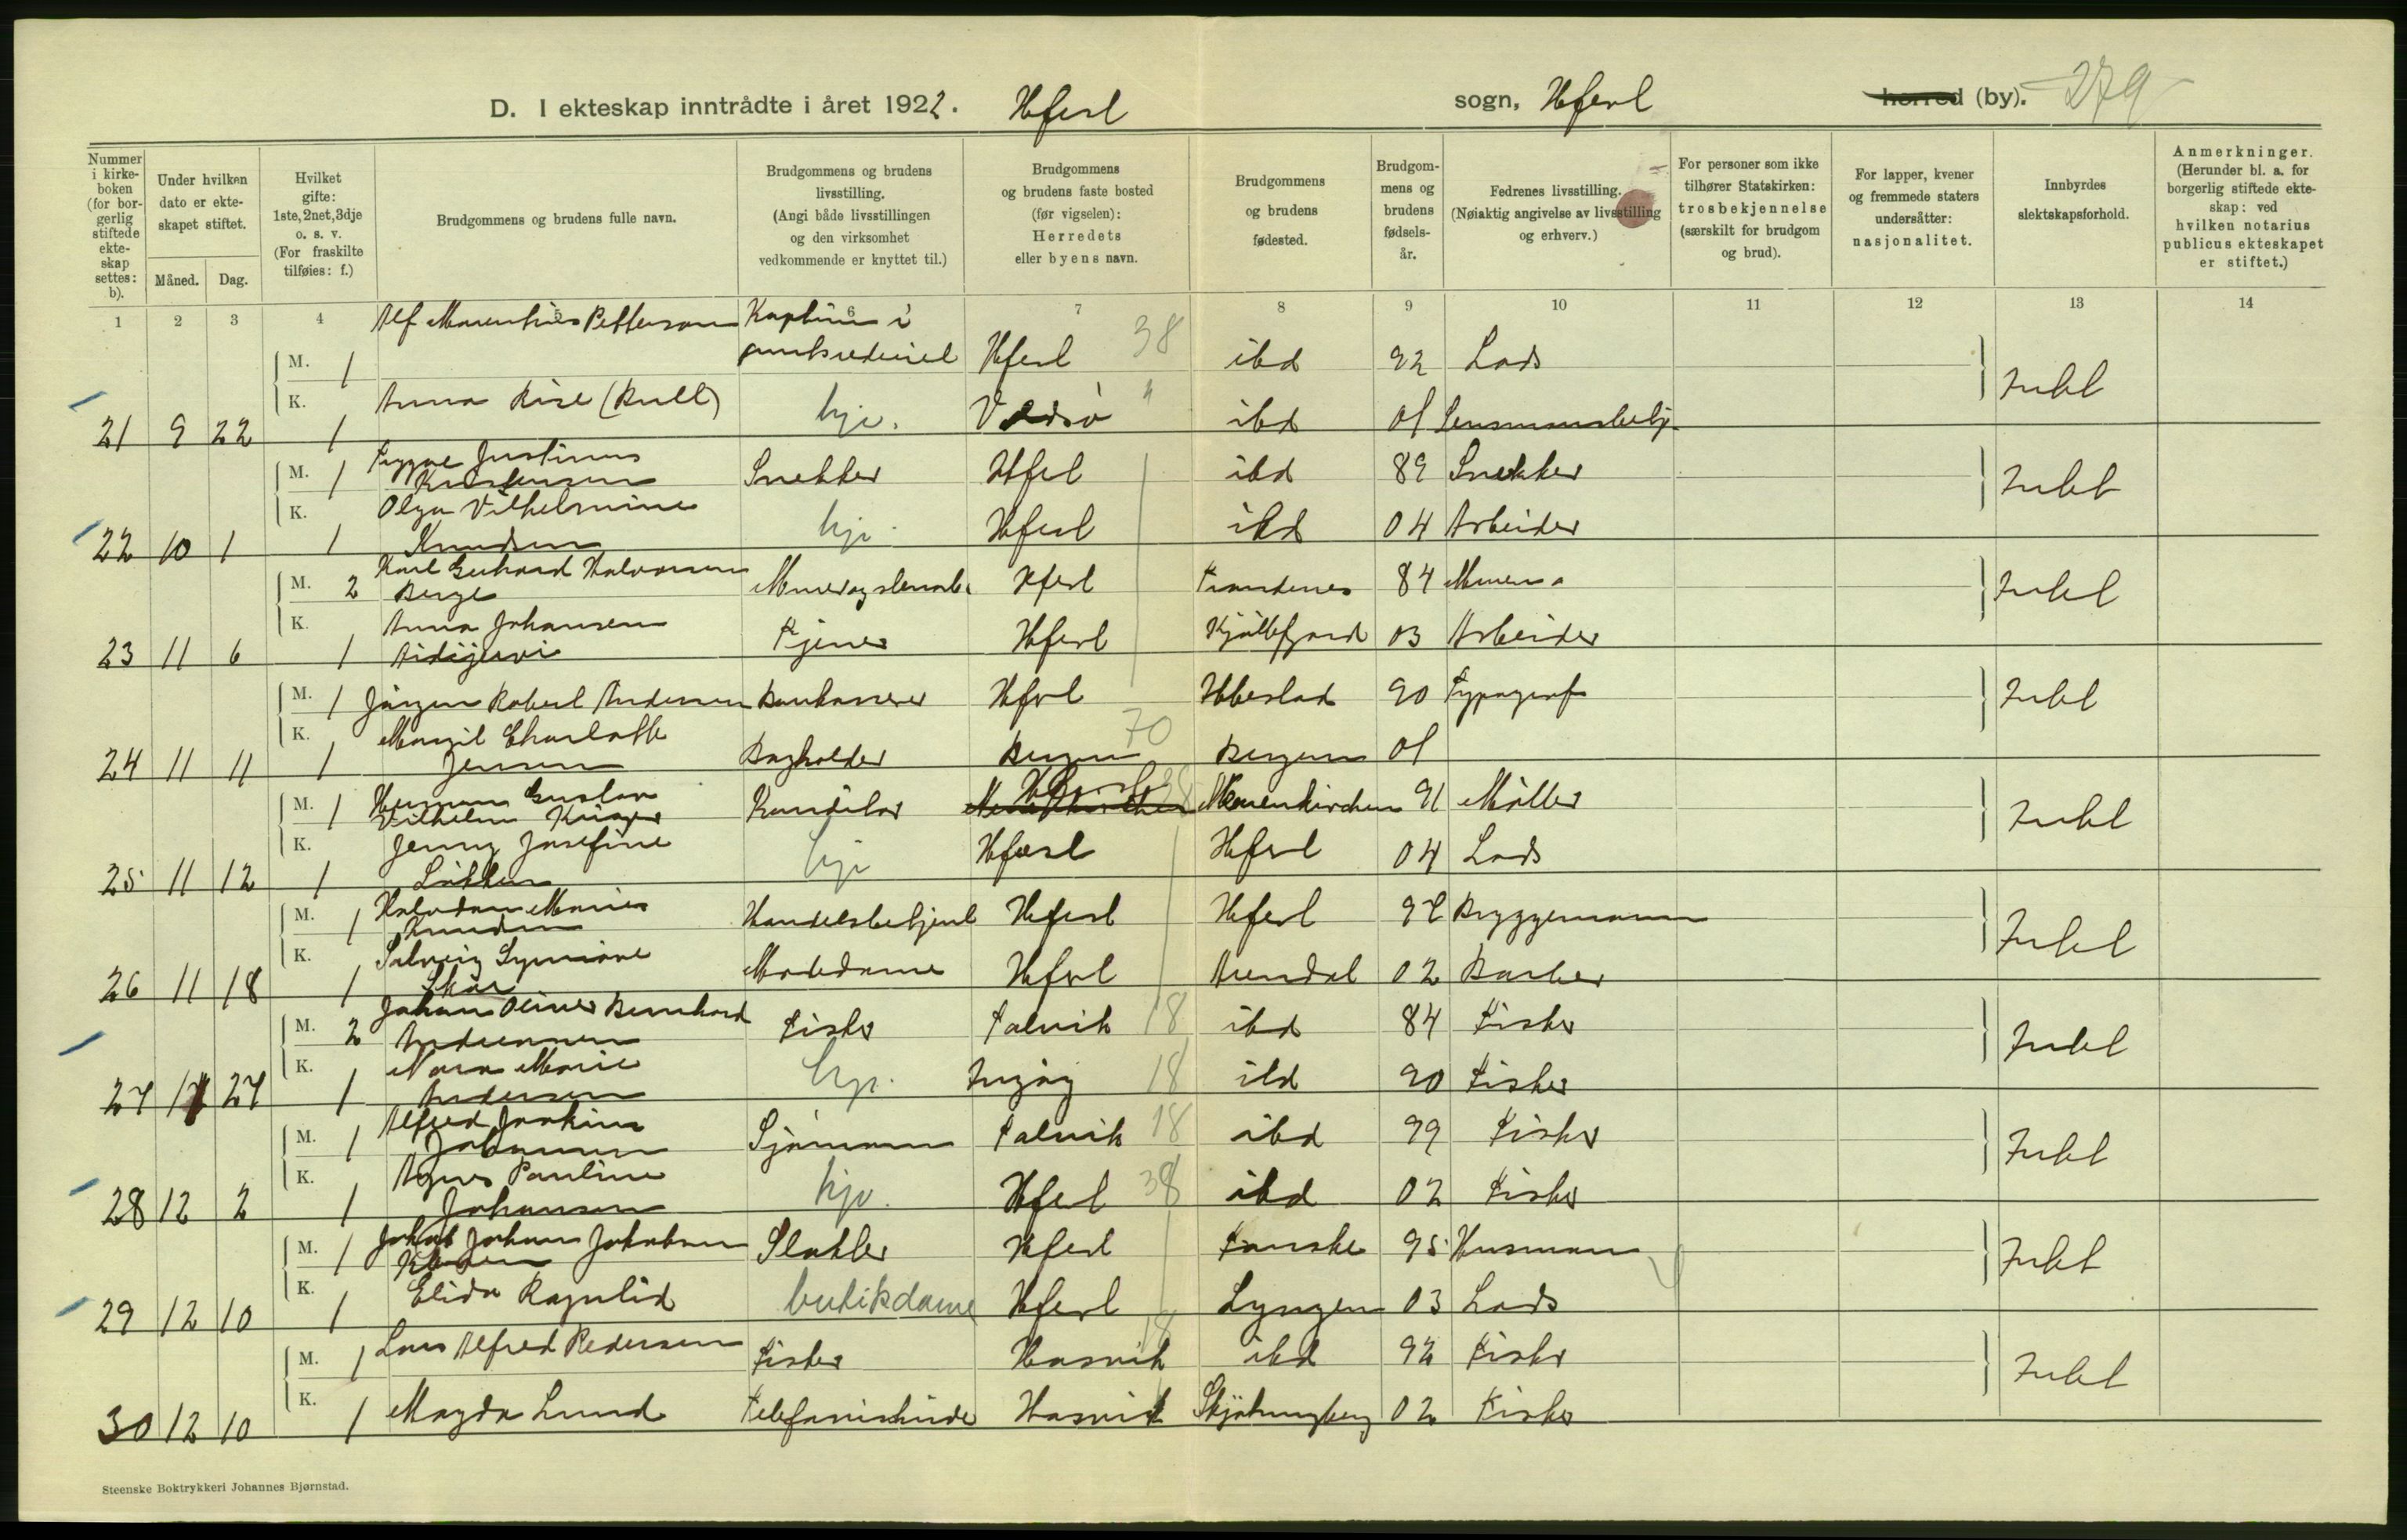 D. I ekteskap inntrådte i året 1922. Hfest sogn, Hfest herred (by). 279
Nummer i kirkeboken (for borgerlig stiftede ekteskap settes: b).
Under hvilken dato er ekteskapet stiftet.
Måned. Dag.
Hvilket gifte: 1ste, 2net, 3dje o. s. v. (For fraskilte tilføies: f.)
Brudgommens og brudens fulle navn.
Brudgommens og brudens livsstilling. (Angi både livsstillingen og den virksomhet vedkommende er knyttet til.)
Brudgommens og brudens faste bosted (før vigselen): Herredets eller byens navn.
Brudgommens og brudens fødested.
Brudgommens og brudens fødselsår.
Fedrenes livsstilling. (Nøiaktig angivelse av livsstilling og erhverv.)
For personer som ikke tilhører Statskirken: trosbekjennelse (særskilt for brudgom og brud).
For lapper, kvener og fremmede staters undersåtter: nasjonalitet.
Innbyrdes slektskapsforhold.
Anmerkninger. (Herunder bl. a. for borgerlig stiftede ekteskap: ved hvilken notarius publicus ekteskapet er stiftet.)
1 2 3 4 5 6 7 8 9 10 11 12 13 14
M. 1 Alf Pettersen Hfest 38 ibd 92 Lods Intet
21 9 22 K. 1 Anna hjv. Vadsø " ibd 01
M. 1 Trygve Justinus Kristensen Snekker Hfest ibd 89 Snekker Intet
22 10 1 K. 1 Olga Vilhelmine Knudsen hjv. Hfest ibd 04 Arbeider
M. 2 Karl Gerhard Halvorsen Berge Hfest Trondenes 84 Murer Intet
23 11 6 K. 1 Anna Johansen Tjener Hfest Kjøllefjord 03 Arbeider
M. 1 Jørgen Robert Andersen Bankkasserer Hfest Ibestad 90 Typograf Intet
24 11 11 K. 1 Margit Charlotte Jensen Bogholder Bergen 70 Bergen 01
M. 1 Herman Gustav Vilhelm Krüger Konditor Hfest 38 91 Møller Intet
25 11 12 K. 1 Jenny Josefine Løkken hjv Hfest Hfest 04 Lods
M. 1 Halvdan Marius Knudsen Handelsbetjent Hfest Hfest Bryggemann Intet
26 11 18 K. 1 Solveig Synnøve Skår Modedame Hfest Arendal 02 Barber
M. 2 Johan Oliver Bernhard Andreassen Fisker Talvik 18 ibd 84 Fisker Intet
27 11 27 K. 1 Nora Marie Andersen hjv. Ingøy 18 ibd 90 Fisker
M. 1 Alfred Joakim Johansen Sjømann Talvik 18 ibd 99 Fisker Intet
28 12 2 K. 1 Agnes Pauline Johansen hjv. Hfest 38 ibd 02 Fisker
M. 1 Jakob Johan Jakobsen Slakter Hfest Fauske 95 Husmann Intet
29 12 10 K. 1 Elida Ragnhild butikdame Hfest Lyngen 03 Lods
M. 1 Lars Alfred Pedersen Fisker Hasvik 18 ibd 92 Fisker Intet
30 12 10 K. 1 Magda Lund Telefonistinde Hasvik Skjøtningberg 02 Fisker
Steenske Boktrykkeri Johannes Bjørnstad.